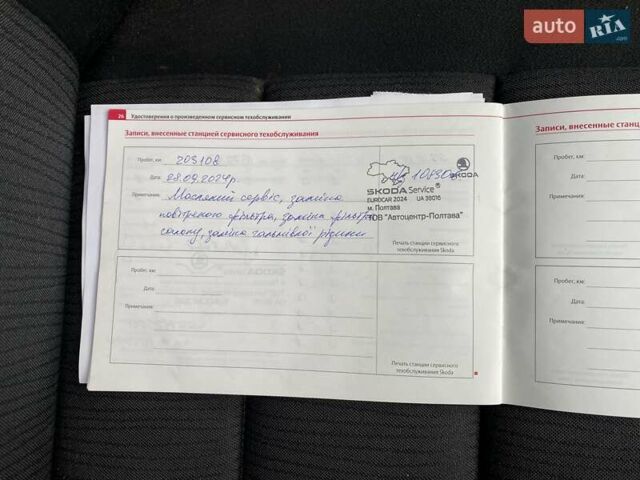 auto RIA.com
26 Удостоверения о произведенном сервисном техобслуживании
Записи, внесенные станцией сервисного техобслуживания
Пробег, км: 203108
Дата: 28.09.2024р.
Примечания: Масляний сервіс, заміна
повітряного фільтра, заміна фільтра
салону, заміна гальмівної рідини
SKODA
SKODA Service®
EUROCAR 2024 UA 38016
м. Полтава
ТОВ "Автоцентр-Полтава"
Печать станции сервисного
техобслуживания Skoda
Пробег, км:
Дата:
Примечания:
Печать станции сервисного
техобслуживания Skoda
Записи, внесенные стан
Пробег, км:
Дата:
Примечания:
Пробег, км:
Дата:
Примечания: